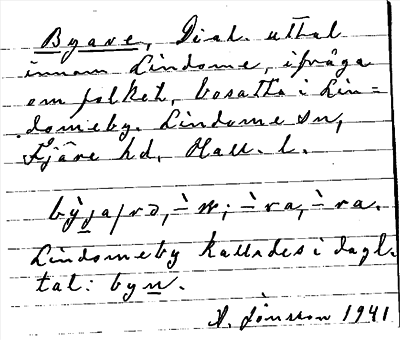 Byare, Dial. uttal
innom Lindome, ifråga
om folket, bosatta i Lin=
domeby. Lindome sn,
Fjäre hd, Hall. l.
Lindomeby kallades i dagl.
tal: byn.
A. Jönsson 1941